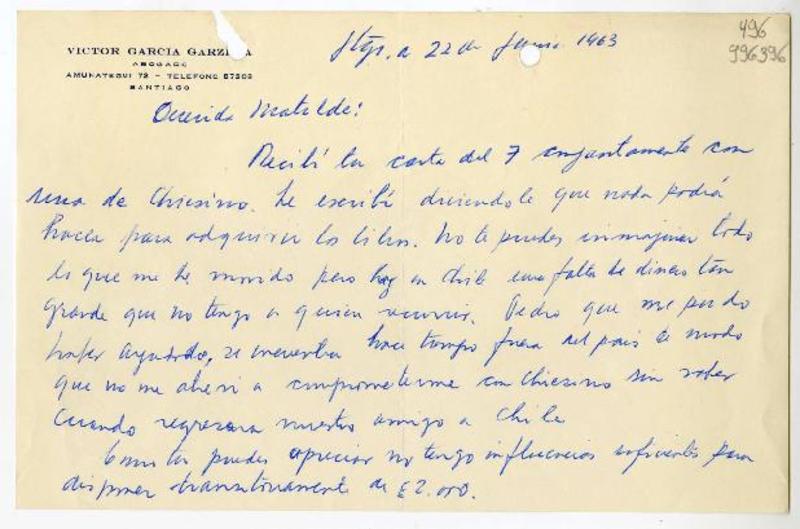 VICTOR GARCIA GARZ A
ABOGADO
AMUNATEGUI 73 - TELEFONO
SANTIAGO
Stgo, a 22 de 1963
496
996396
Querida Matilde:
Recibí tu carta del 7 conjuntamente con
una de Chiesino. Le escribí diciendole que nada podía
hacer para adquirir los libros. No te puedes inmaginar todo
lo que me he movido pero hay en Chile una falta de dinero tan
grande que no tengo a quien recurrir. Pedro que me pudo
haber ayudado, se encuentra hace tiempo fuera del país de modo
que no me atreví a comprometerme con Chiesino sin saber
cuando regresara nuestro amigo a Chile
Como tu puedes apreciar no tengo influencias suficientes para
disponer transitoriamente de £2.000.